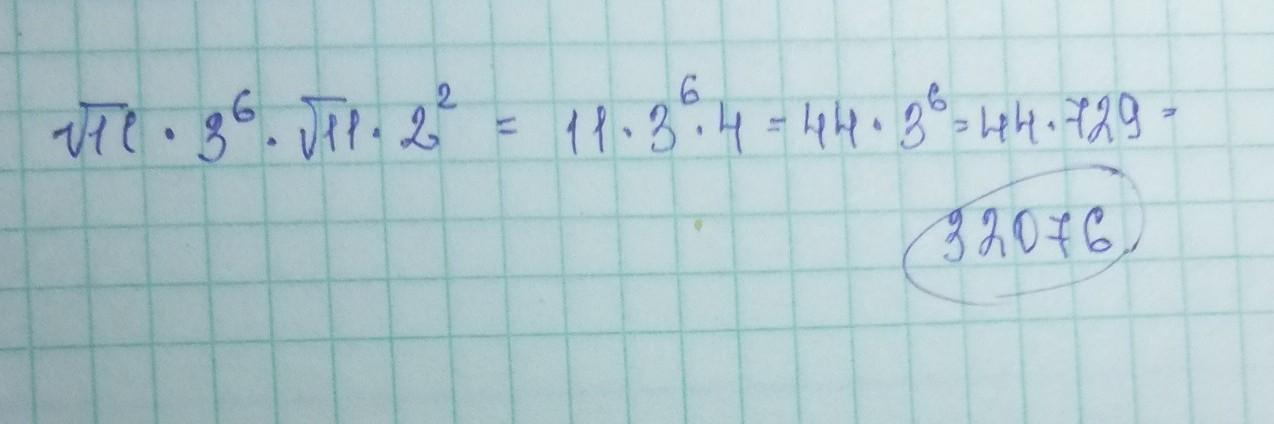 √11 · 3⁶ · √11 · 2² = 11 · 3⁶ · 4 = 44 · 3⁶ = 44 · 729 =
32076